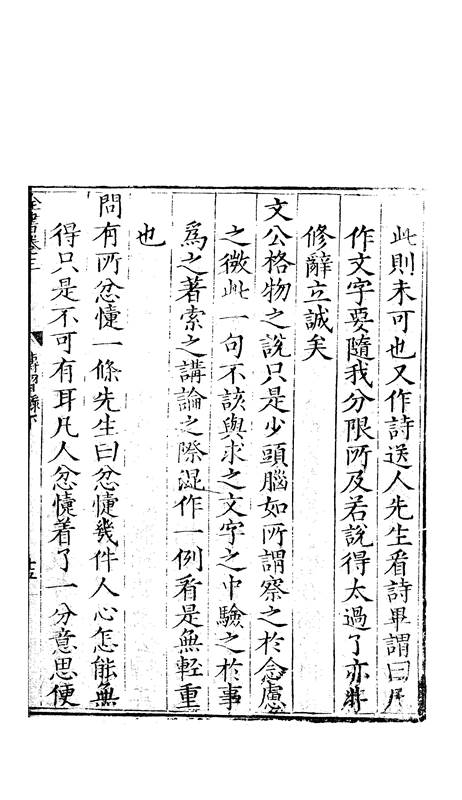 此則未可也又作詩送人先生看詩畢謂曰凡
作文字要隨我分限所及若說得太過了亦非
修辭立誠矣
文公格物之說只是少頭腦如所謂察之於念慮
之微此一句不該與求之文字之中驗之於事
爲之著索之講論之際混作一例看是無輕重
也
問有所忿懥一條先生曰忿懥幾件人心怎能無
得只是不可有耳凡人忿懥着了一分意思便
全書卷之三
傳習錄下